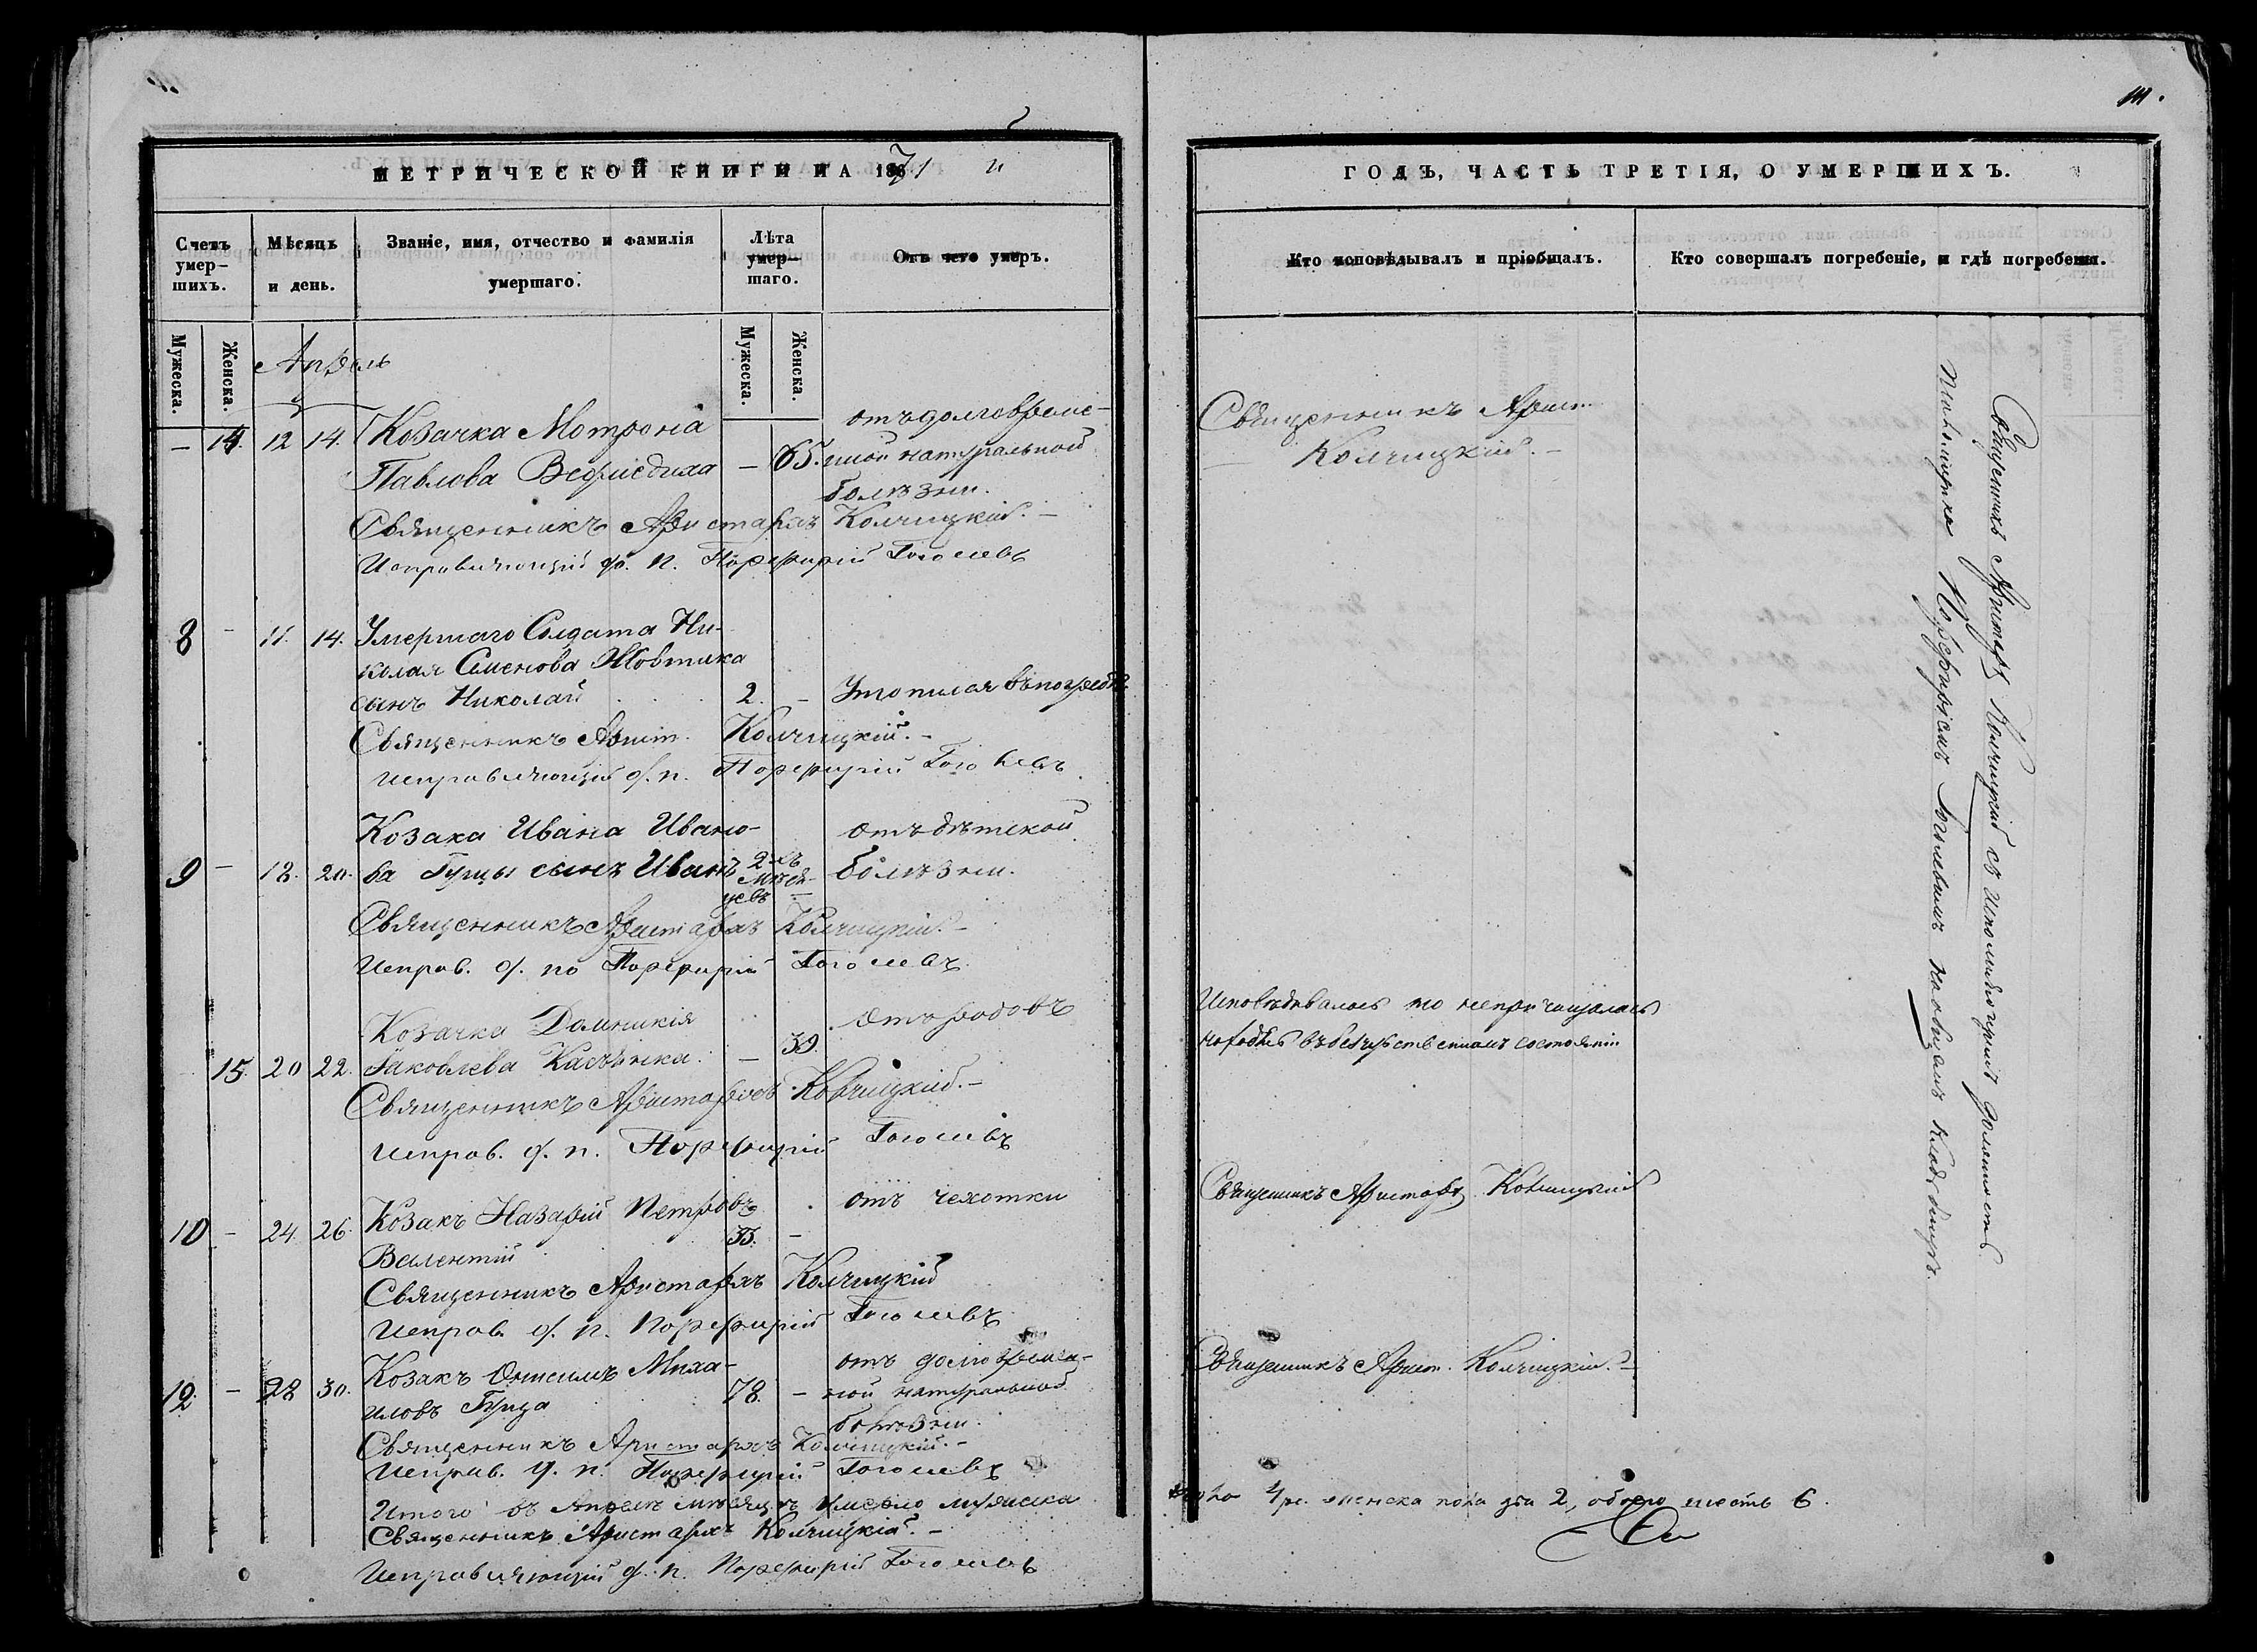 111.
МЕТРИЧЕСКОЙ КНИГИ НА 1871 й
Счетъ умер-шихъ.
Мѣсяцъ и день.
Званіе, имя, отчество и фамилія умершаго.
Лѣта умер-шаго.
Отъ чего умеръ.
Мужеска.
Женска.
Мужеска.
Женска.
Апрѣль
отъ долговреме-
— 14. 12 14. Козачка Мотрона
Павлова — 65. нной натуральной
болѣзни.
Священникъ Аристархъ Колчицкій. —
Исправляющій д. п. Порфирій Гоголевъ
8 — 11. 14. Умершаго Солдата Ни-
колая Семенова Жовтика
сынъ Николай 2. — Утопился въ погребѣ
Священникъ Арист. Колчицкій. —
исправляющій д. п. Порфирій Гоголевъ
Козака Ивана Ивано- отъ дѣтской
9 — 18. 20. ва Гуцы сынъ Иванъ 2хъ мѣся-цевъ — болѣзни.
Священникъ Аристархъ Колчицкій. —
Исправ. д. по Порфирій Гоголевъ
Козачка Домникія отъ родовъ
15. 20 22. Іаковлева — 39.
Священникъ Аристархъ Колчицкій. —
Исправ. д. п. Порфирій Гоголевъ
Козакъ Назарій Петровъ отъ чехотки
10 — 24. 26. —
Велентій
Священникъ Аристархъ Колчицкій
Исправ. д. п. Порфирій Гоголевъ
Козакъ Онисимъ Миха- отъ долговремен-
12. — 28 30. иловъ Гуца 78. — ной натуральной
болѣзни.
Священникъ Аристархъ Колчицкій. —
Исправ. д. п. Порфирій Гоголевъ
Итого въ Апрелѣ мѣсяцѣ умерло мужеска
Священникъ Аристархъ Колчицкій. —
Исправляющій д. п. Порфирій Гоголевъ
ГОДЪ, ЧАСТЬ ТРЕТІЯ, О УМЕРШИХЪ.
Кто исповѣдывалъ и пріобщалъ.
Кто совершалъ погребеніе, и гдѣ погребены.
Священникъ Арист.
Колчицкій. —
Исповѣдывалась но непричащалась
въ безчувственномъ состояніи
Священникъ Аристархъ Колчицкій
Священникъ Арист. Колчицкій. —
Священникъ Аристархъ Колчицкій съ исполняющимъ должность
Псаломщика Порфиріемъ Гоголевымъ на общемъ кладбищѣ.
пола 4ре. женска пола два 2, обоего шесть 6.